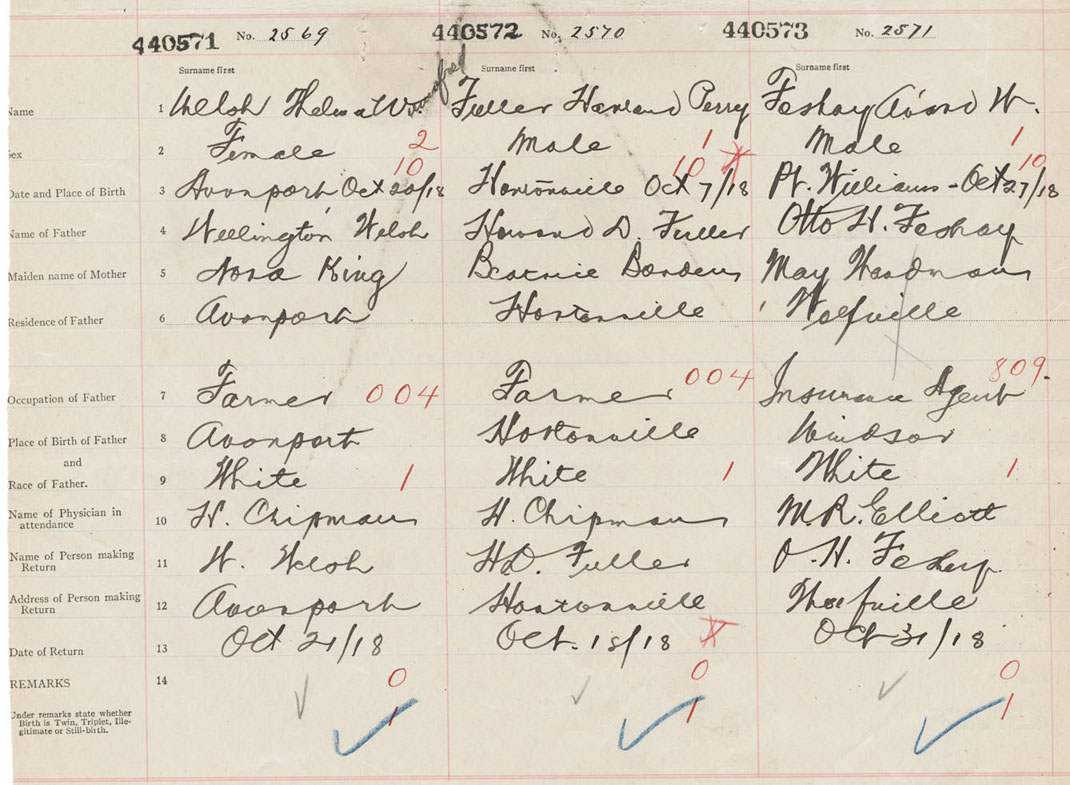 440571 No. 2569 440572 No. 2570 440573 No. 2571
Surname first Surname first Surname first
Name 1 Welsh Thelma Fuller Harland Perry W.
Sex 2 Female 2 Male 1 Male 1
Date and Place of Birth 3 Avonport Oct 20/18 10 Hortonville Oct 7/18 10 Pt. Williams - Oct 27/18 10
Name of Father 4 Wellington Welsh Howard D. Fuller Otto H. Feshay
Maiden name of Mother 5 Nora King Beatrice Borden May Hardman
Residence of Father 6 Avonport Hortonville Wolfville
Occupation of Father 7 Farmer 004 Farmer 004 Insurance Agent 809.
Place of Birth of Father 8 Avonport Hortonville Windsor
and
Race of Father. 9 White 1 White 1 White 1
Name of Physician in attendance 10 H. Chipman H. Chipman M.R. Elliott
Name of Person making Return 11 W. Welsh H.D. Fuller O.H.
Address of Person making Return 12 Avonport Hortonville Wolfville
Date of Return 13 Oct 21/18 Oct. 18/18 Oct 31/18
REMARKS 14 0 0 0
Under remarks state whether 1 1 1
Birth is Twin, Triplet, Ille-
gitimate or Still-birth.